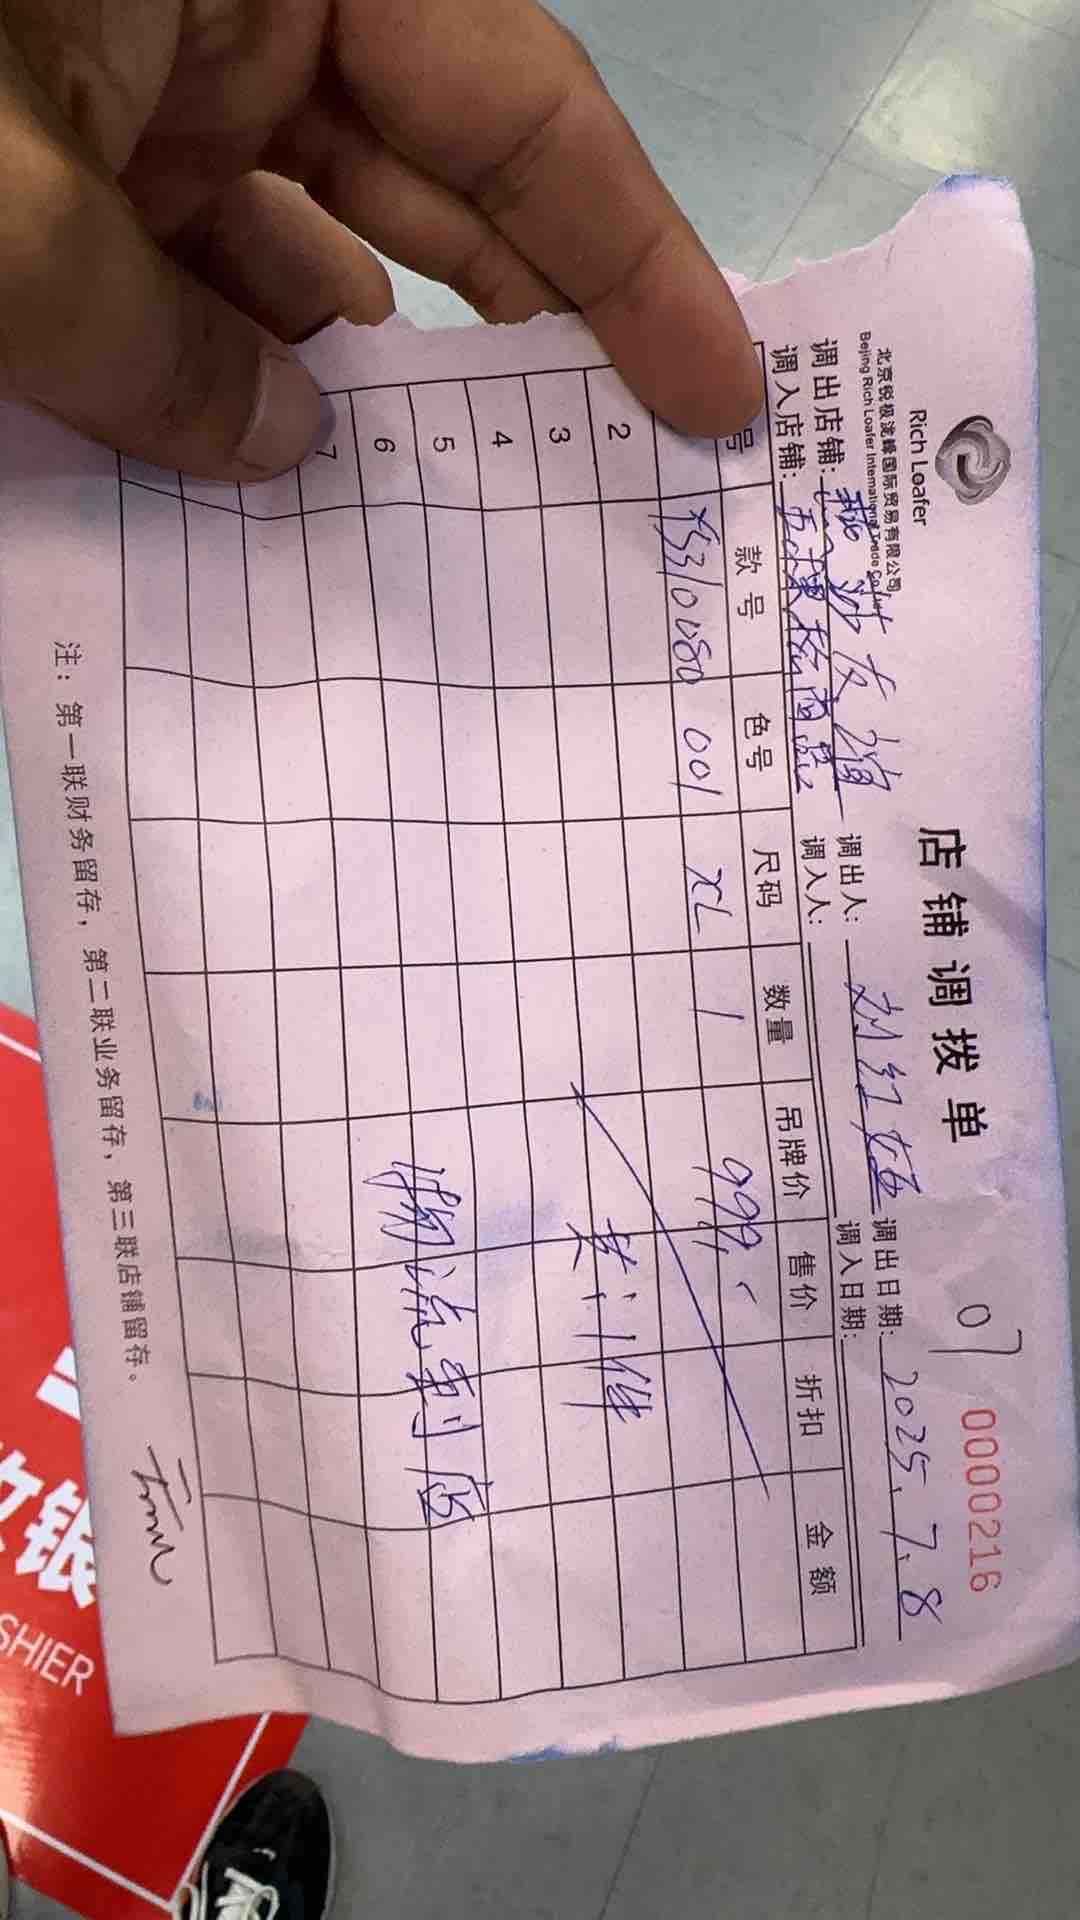 Rich Loafer
北京锐极泷峰国际贸易有限公司
Beijing Rich Loafer International Trade Co., Ltd
店铺调拨单
07
0000216
调出店铺: 燕莎友谊 调出人: 刘红 调出日期: 2025.7.8
调入店铺: 五棵松 调入人: 调入日期:
号 款号 色号 尺码 数量 吊牌价 售价 折扣 金额
310080 001 XL 1 999.-
2
3 共:1件
4
5 物流到店
6
7
注: 第一联财务留存, 第二联业务留存, 第三联店铺留存。
收银
SHIER